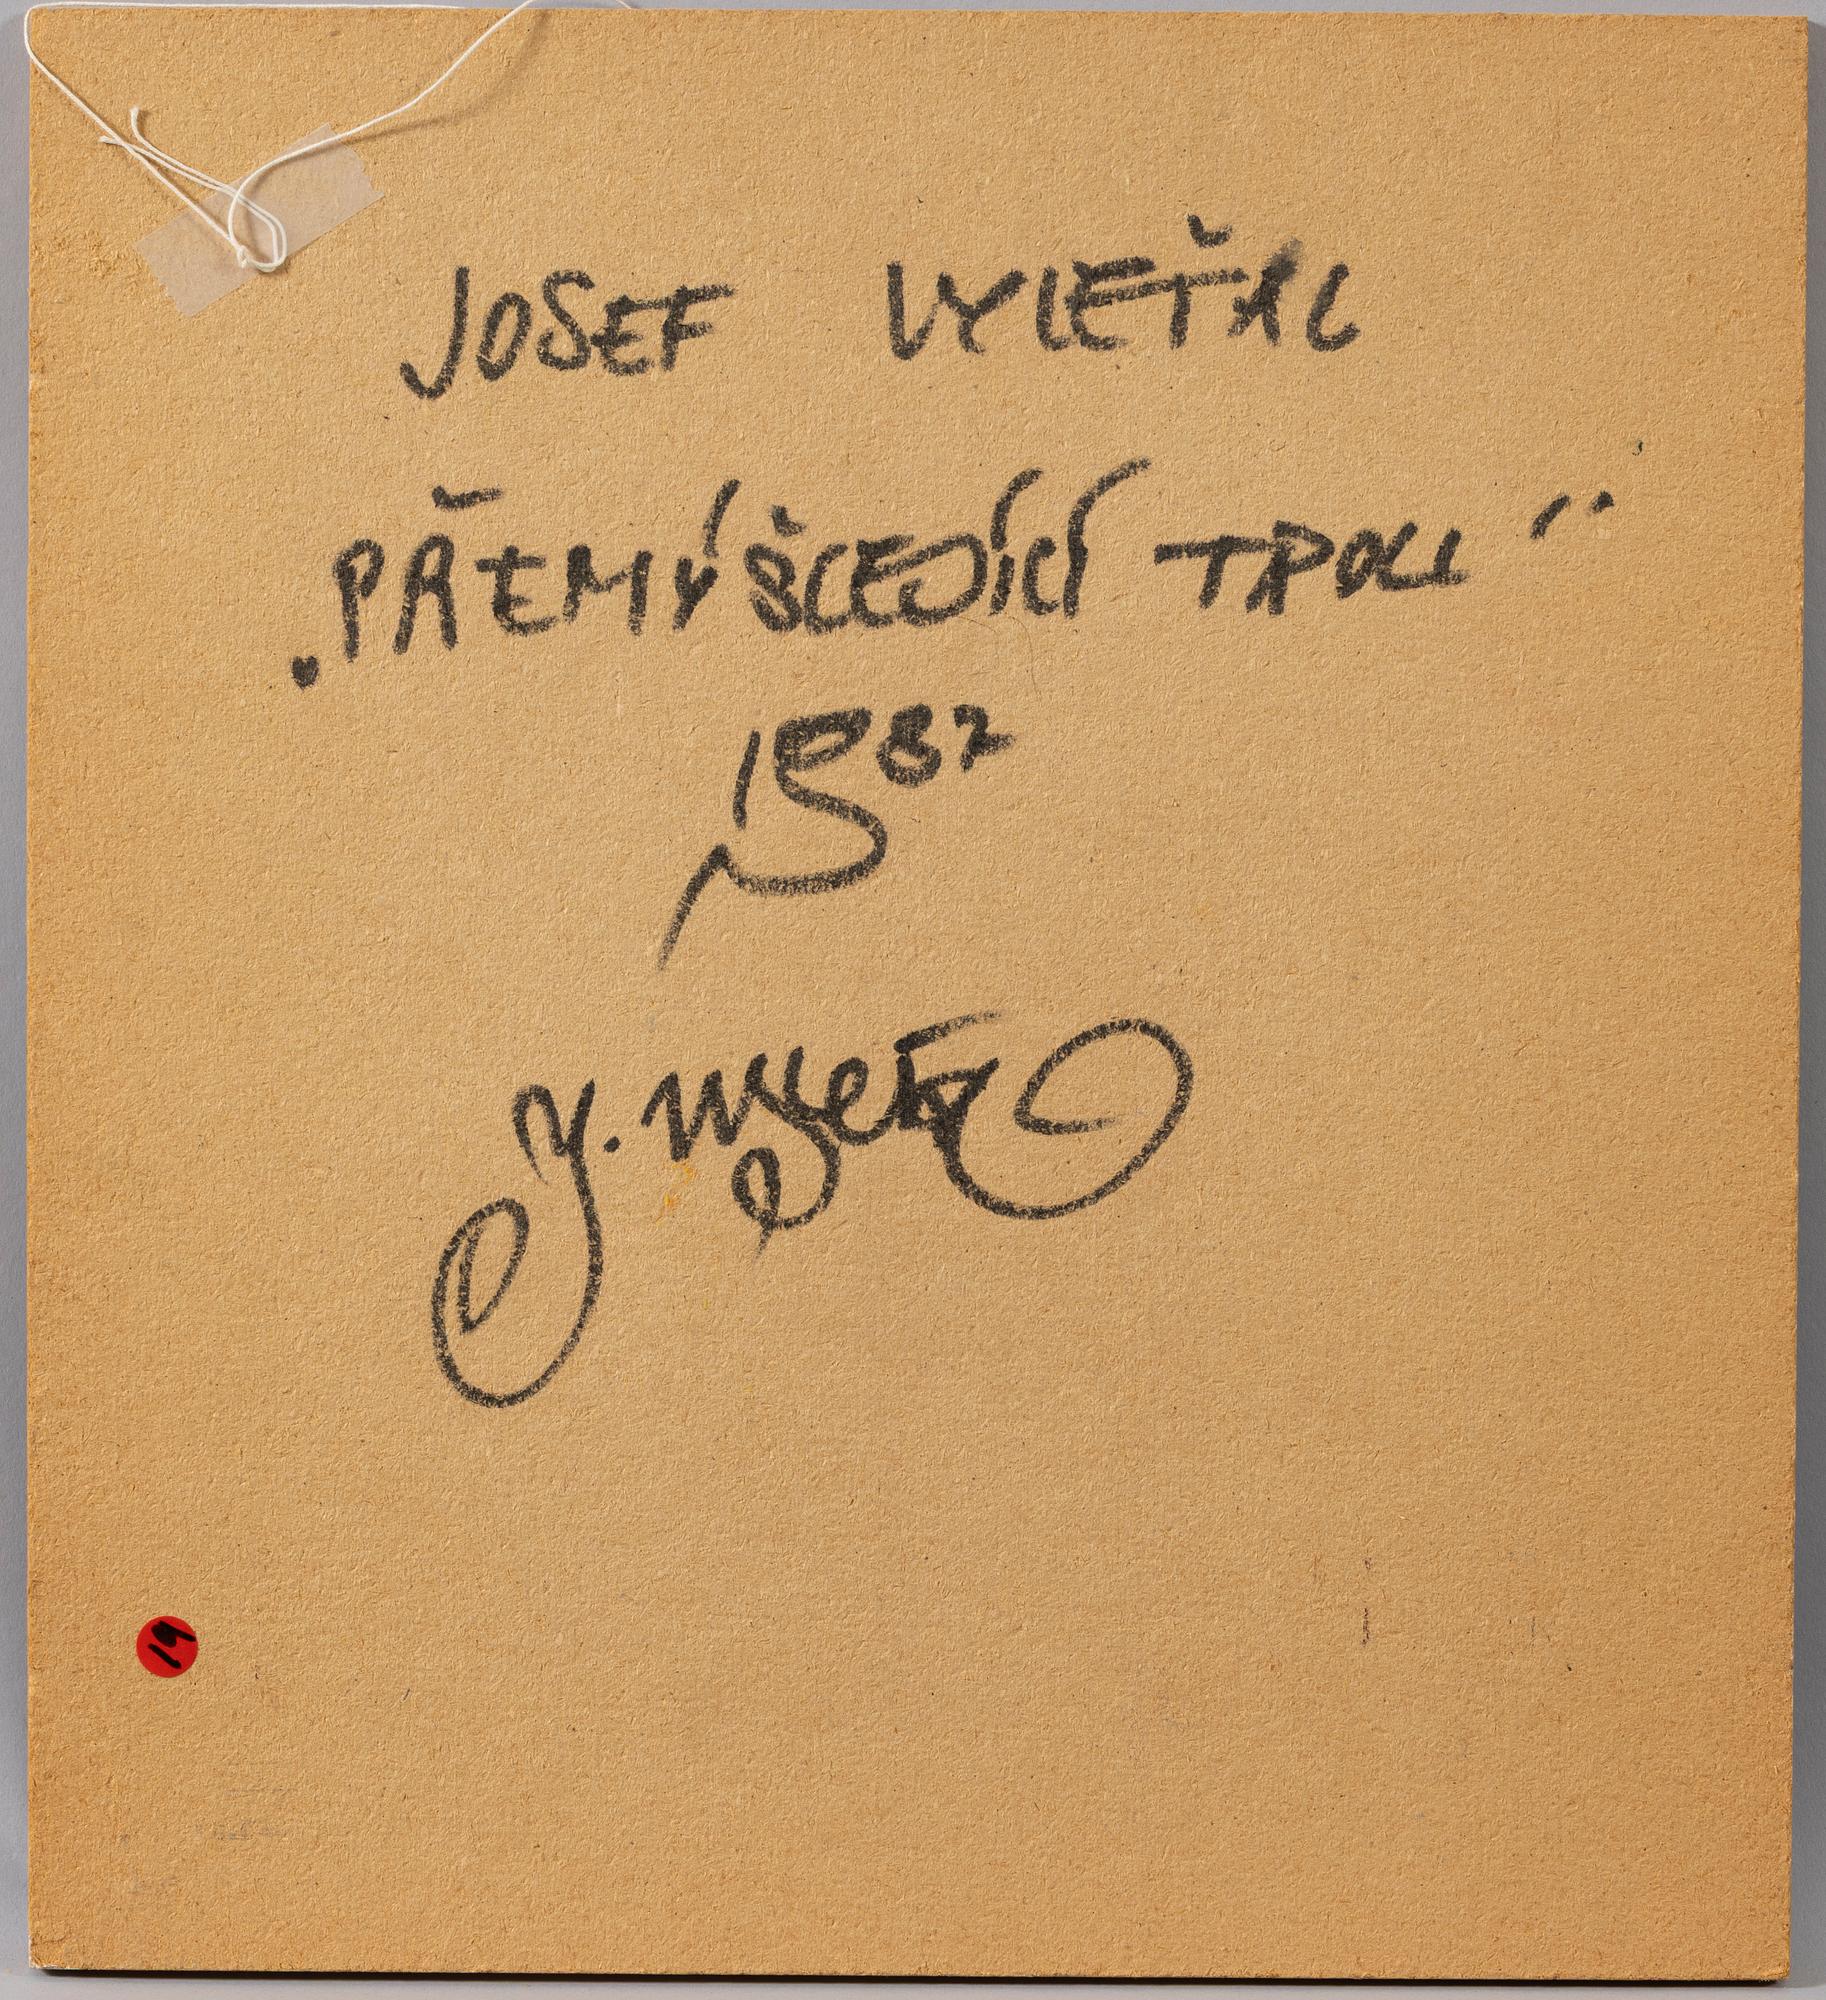 JOSEF VYLEŤAL
„PŘEMÝŠLEJÍCÍ TROLL“
1982
J. Vyleťal
19